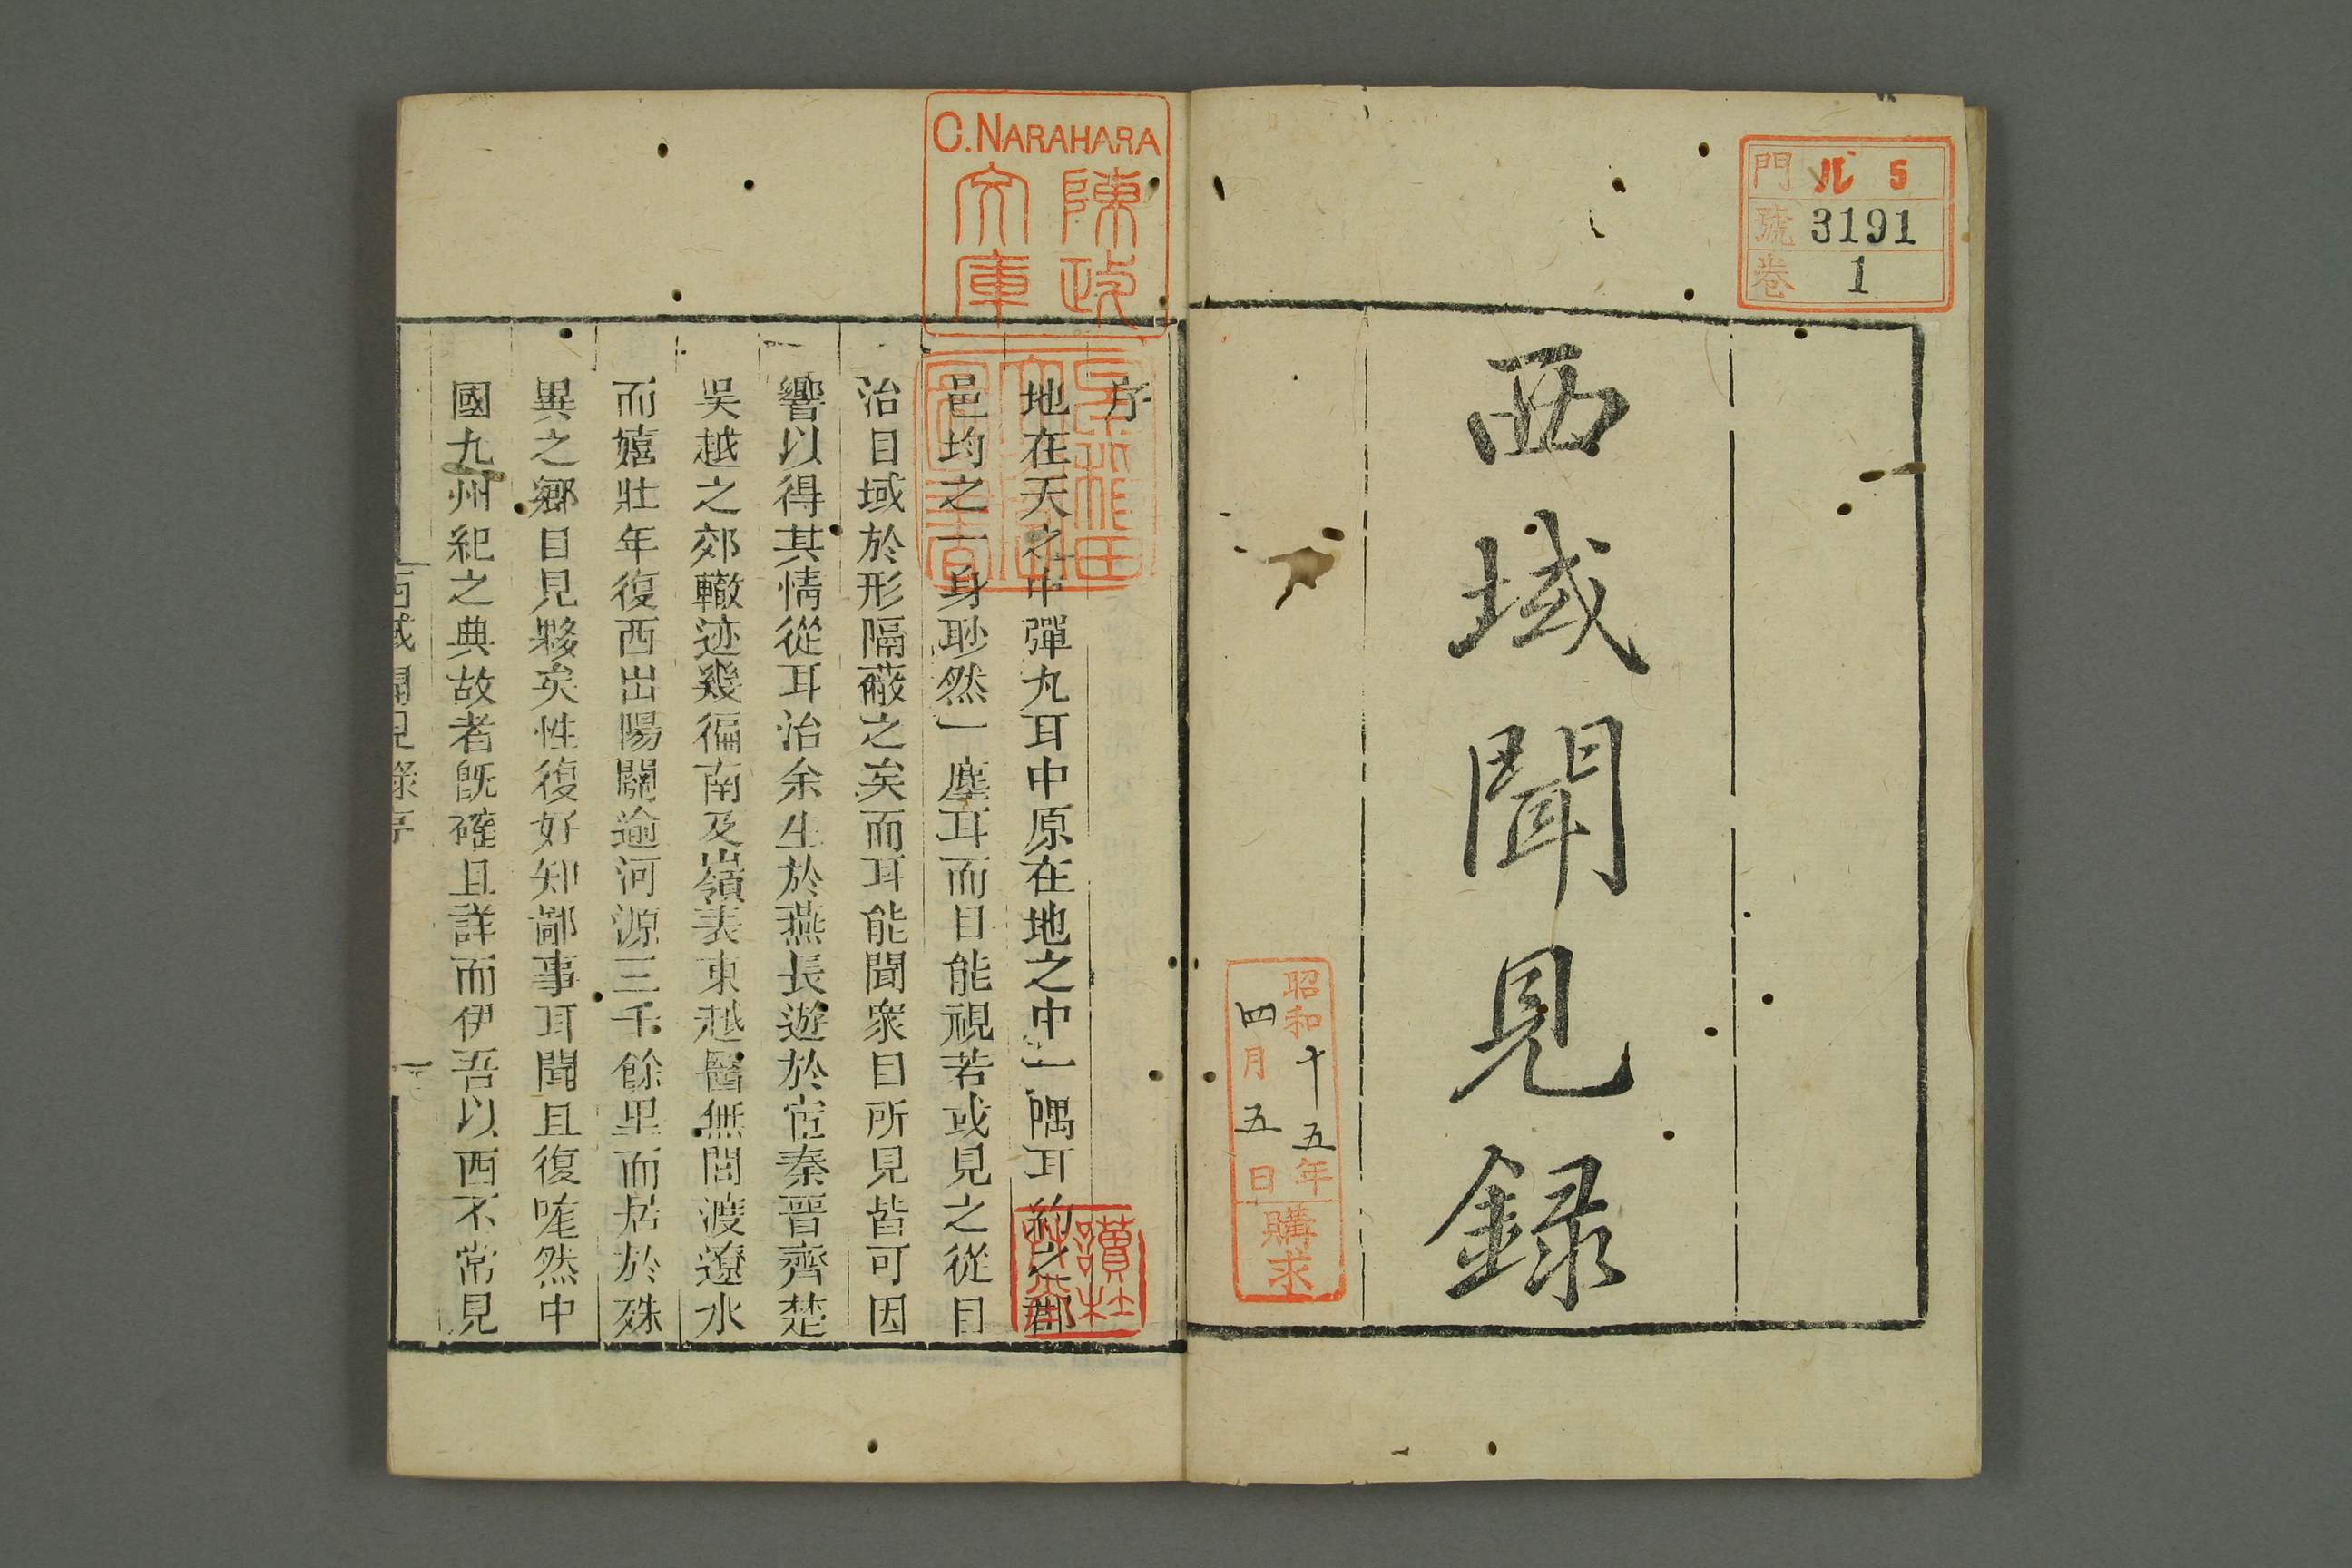 西域聞見録
門 ル 5
號 3191
卷 1
昭和十五年
四月五日
購求
C.NARAHARA
陳政
文庫
讀杜
序
地在天之中彈丸耳中原在地之中一隅耳約之郡
邑均之一身眇然一塵耳而目能視若或見之從目
治目域於形隔蔽之矣而耳能聞衆目所見皆可因
響以得其情從耳治余生於燕長遊於宦秦晉齊楚
吳越之郊轍迹幾徧南及嶺表東越醫無閭渡遼水
而嬉壯年復西出陽關逾河源三千餘里而居於殊
異之鄉目見夥矣性復好知鄙事耳聞且復嘵然中
國九州紀之典故者旣確且詳而伊吾以西不常見
西域聞見錄序
一